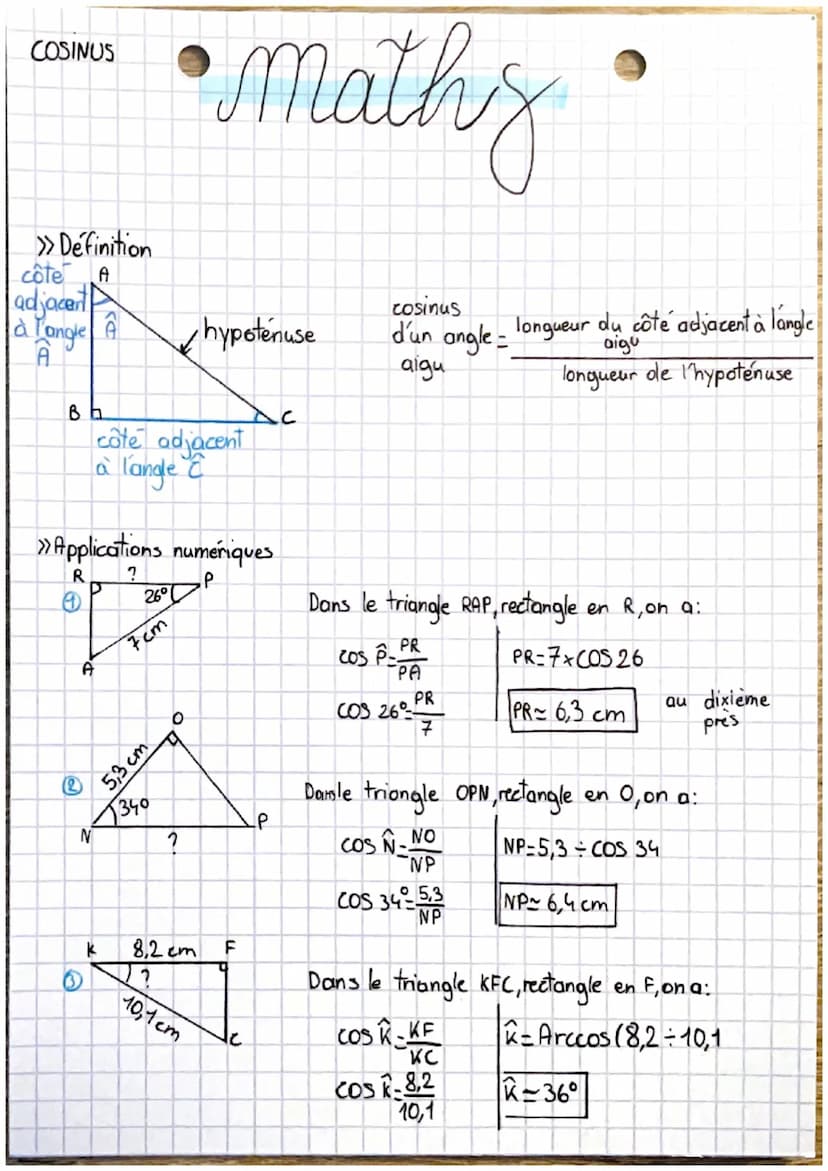 COSINUS
Maths
>> Définition
côté
adjacent
à l'angle
Â
A
Â
hypoténuse
B
C
côté adjacent
à l'angle Ĉ
cosinus
d'un angle = longueur du côté adjacent à l'angle
aigu
aigu
longueur de l'hypoténuse
>> Applications numériques
①
R ? P
26°
7 cm
A
Dans le triangle RAP, rectangle en R, on a:
cos P̂ = PR/PA
cos 26° = PR/7
PR = 7 × COS 26
PR ≃ 6,3 cm
au dixième
près
②
O
5,3 cm
34°
N ? P
Dans le triangle OPN, rectangle en O, on a:
cos N̂ = NO/NP
cos 34° = 5,3/NP
NP = 5,3 ÷ cos 34
NP ≃ 6,4 cm
③
K 8,2 cm F
?
10,1 cm
C
Dans le triangle KFC, rectangle en F, on a:
cos K̂ = KF/KC
cos K̂ = 8,2/10,1
K̂ = Arccos(8,2 ÷ 10,1
K̂ ≃ 36°